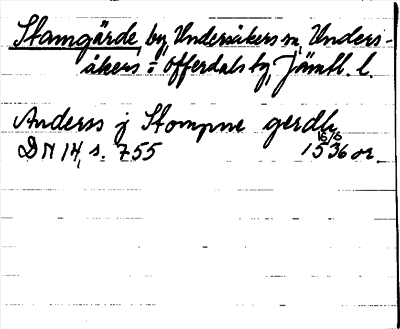 Stamgärde by, Undersåkers sn, Unders-
åkers - Offerdals tg, Jämtl. l.
Anderss j Stompne gerdh
16/6
DN 14, s. 755 1536 or.